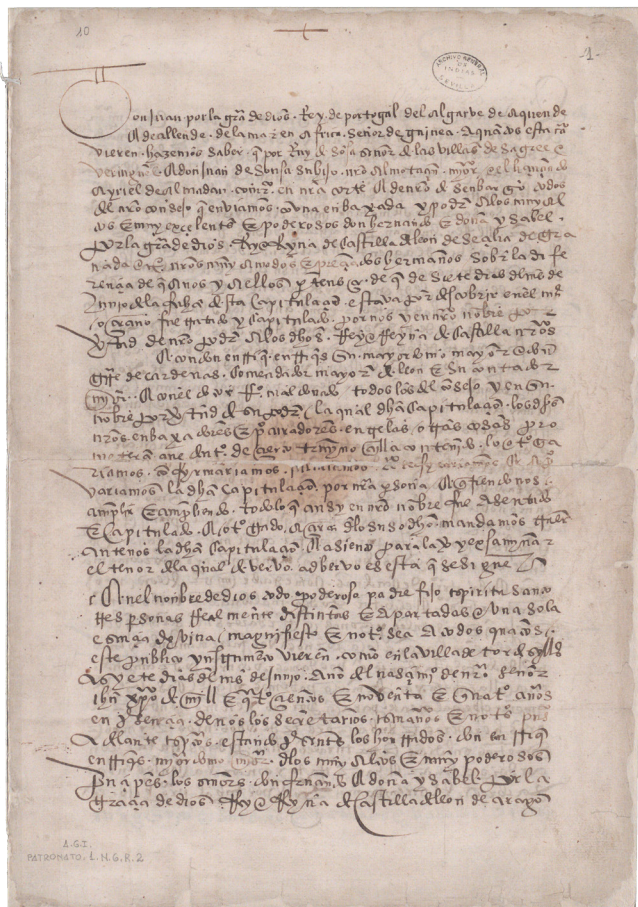 10
-1-
ARCHIVO GENERAL DE INDIAS SEVILLA
Don Juan por la graª de dios Rey de portogal del algarve de aquende
e de allende de la mar en africa señor de guinea a quantos esta cā
vieren hazemos saber que por Ruy de sosa señor de las villas de sagres e
e don juan de sosa su hijo nrō almotaçen mayor
de almadan en nrā corte
del nrō consejo que enviamos con una enbaxada y podr a los muy al
tos e muy excelentes e poderosos don hernando e doña ysabel
por la graª de dios Rey e Reyna de castilla de leon de secilia de gra
nada nrōs muy amados e preçiados hermanos sobre la dife
rençia de que a nos y a ellos pertenesçe de lo que de siete dias del mes de
junio de la fecha de esta capitulaçion estava por descobrir en el mar
oçeano fue tratado y capitulado por nos y en nrō nobre por
vtud de nrō poder e a los dhōs Rey e Reyna de castilla nrōs
don enrrique enrriques su mayordomo mayor e don
gutē de cardenas comendador mayor de leon e su contador
mayor e el doctor todos los del su consejo y en su
nobre por vtud de su podr en la qual dhā capitulaçion los dhōs
nrōs enbaxadores e procuradores entre las otras cosas pro
metieron que dentro de çierto termino en ella contenido lo otorga
riamos confirmariamos
variamos la dhā capitulaçion por nrā persona e queriendo nos
conplir e conpliendo todo lo que ansy en nrō nobre fue asentado
e capitulado e otorgado açerca de lo suso dhō mandamos traer
ante nos la dhā capitulaçion e asiento para la ver y exsaminar
el tenor de la qual de verbo ad berbo es esta que se sigue
En el nonbre de dios todo poderoso padre e fijo e spiritu santo
tres personas Realmente distintas e apartadas e una sola
esençia divina magnifiesto e notorio sea a todos quantos
este publico ynstrumento vieren como en la villa de tordesyllas
a syete dias del mes de junio año del nasçimiº de nrō señor
ihū xpō de mill e quatroçientos e noventa e quatro años
en presençia de nos los secretarios escrivanos e notarios pucos
de llante escriptos estando presentes los honrrados don enrrique
enrriques mayordomo mayor de los muy altos e muy poderosos
prinçipes los señores don fernando e doña ysabel por la
graçia de dios Rey e Reyna de castilla de leon de aragon
A.G.I.
PATRONATO, 1, N. 6, R. 2